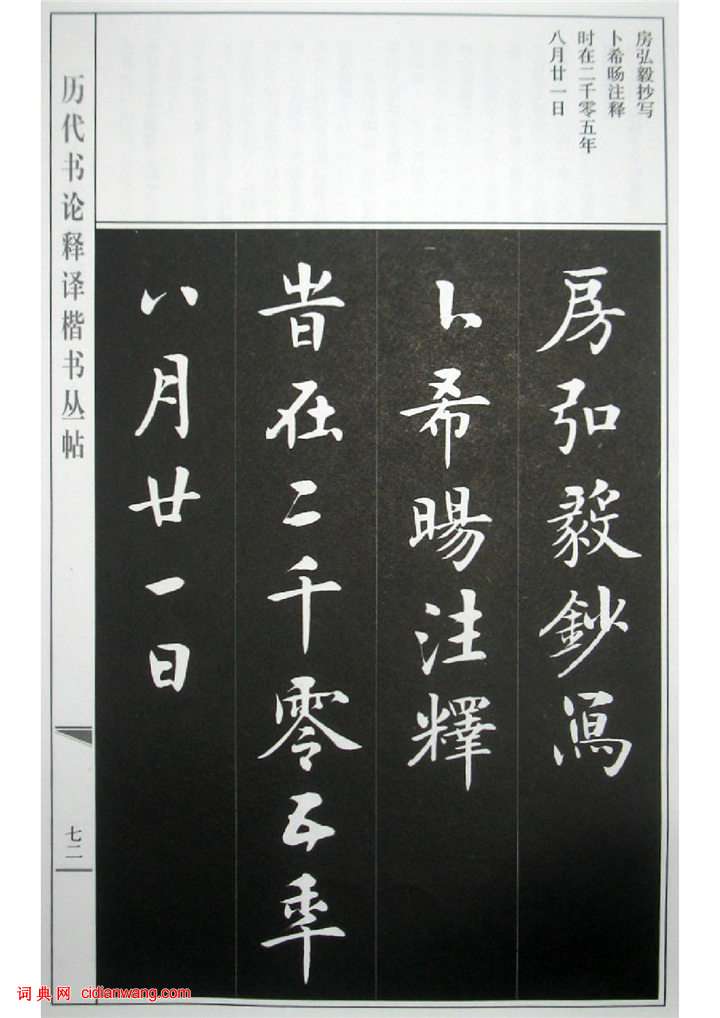 房弘毅抄写
卜希旸注释
时在二千零五年
八月廿一日
房弘毅鈔寫
卜希暘注釋
旹在二千零五年
八月廿一日
历代书论释译楷书丛帖
七二
词典网 cidianwang.com